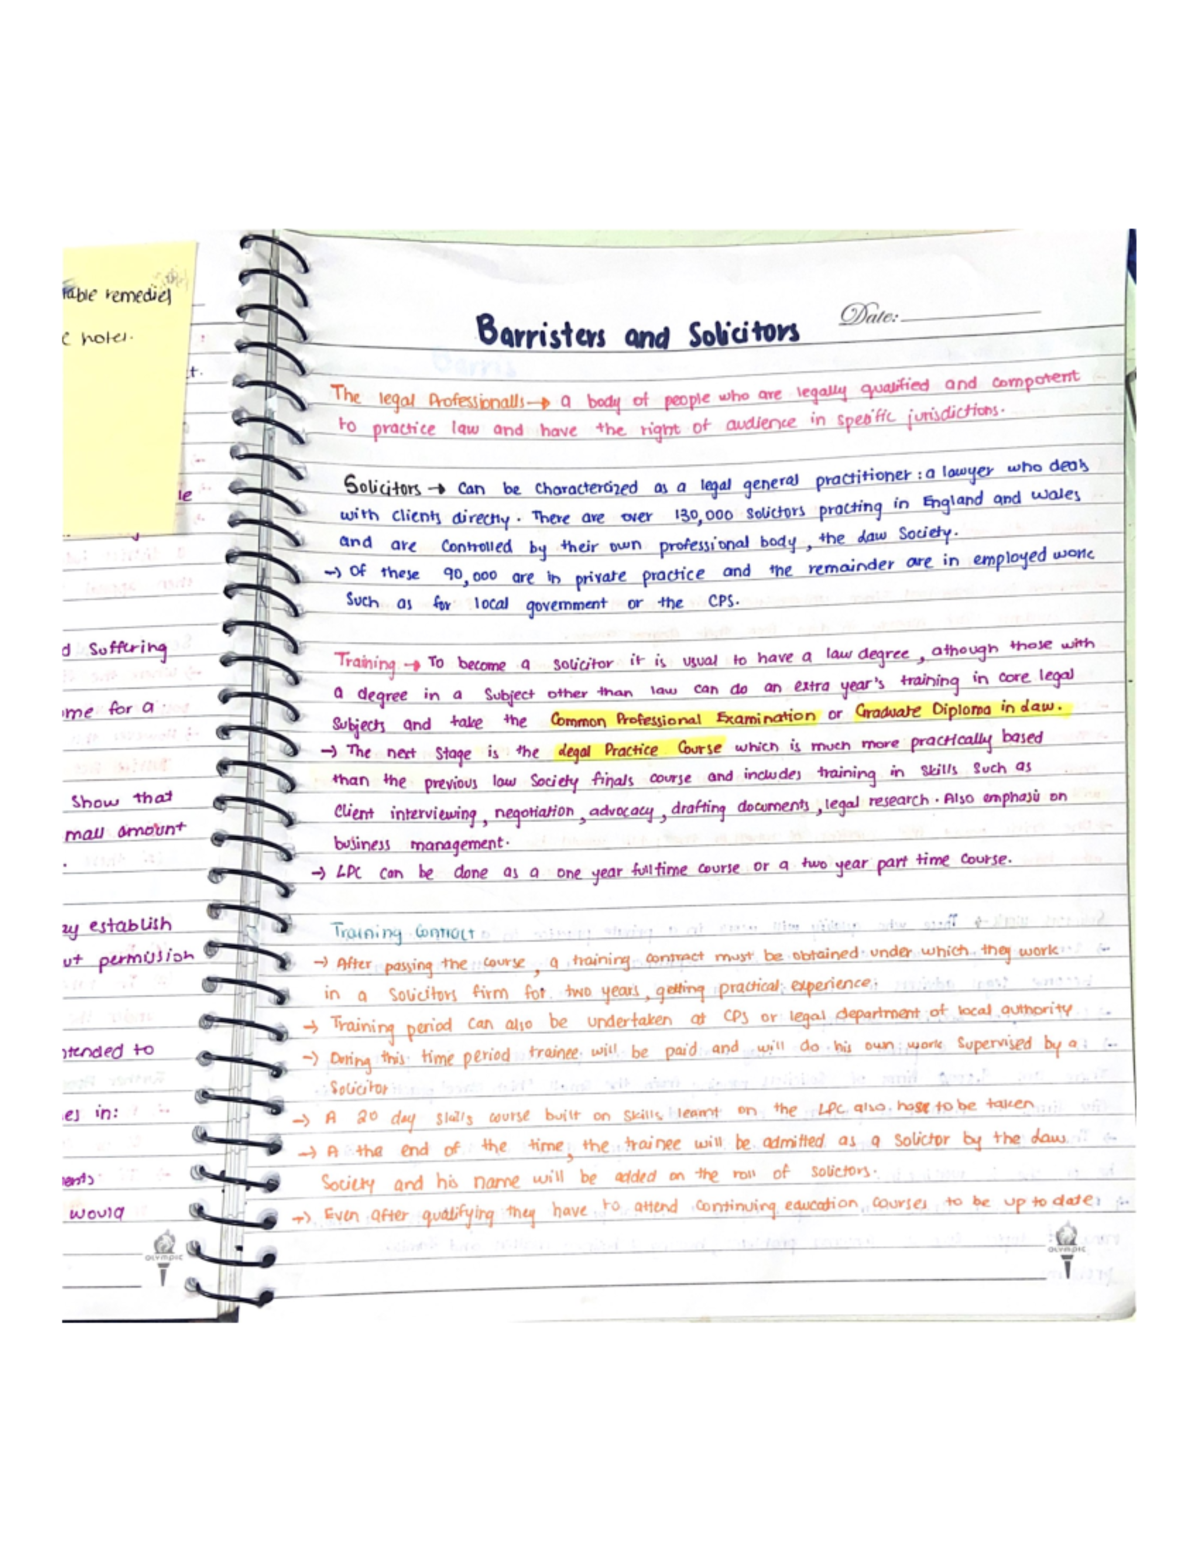 able remedies
notes.
t.
le
d Suffering
ome for a
Show that
mall amount
.
ay establish
ut permission
ntended to
es in:
ents
would
OLYMPIC
Barristers and Solicitors
Date:
The legal Professionalls → a body of people who are legally qualified and competent
to practice law and have the right of audience in specific jurisdictions.
Solicitors → Can be characterized as a legal general practitioner : a lawyer who deals
with clients directly. There are over 130,000 solictors practing in England and Wales
and are controlled by their own professional body, the Law Society.
→ Of these 90,000 are in private practice and the remainder are in employed work
Such as for local government or the CPS.
Training → To become a solicitor it is usual to have a law degree, athough those with
a degree in a subject other than law can do an extra year's training in core legal
subjects and take the Common Professional Examination or Graduate Diploma in Law.
→ The next stage is the Legal Practice Course which is much more practically based
than the previous law Society finals course and includes training in skills such as
client interviewing, negotiation, advocacy, drafting documents, legal research. Also emphasis on
business management.
→ LPC can be done as a one year fulltime course or a two year part time course.
Training Contract
→ After passing the course, a training contract must be obtained under which they work
in a Solicitors firm for two years, getting practical experience
→ Training period can also be undertaken at CPS or legal department of local authority
→ During this time period trainee will be paid and will do his own work supervised by a
Solicitor
→ A 20 day skills course built on skills learnt on the LPC also has to be taken
→ A the end of the time, the trainee will be admitted as a solictor by the Law
Society and his name will be added on the roll of solictors.
→ Even after qualifying they have to attend continuing education courses to be up to date.
OLYMPIC